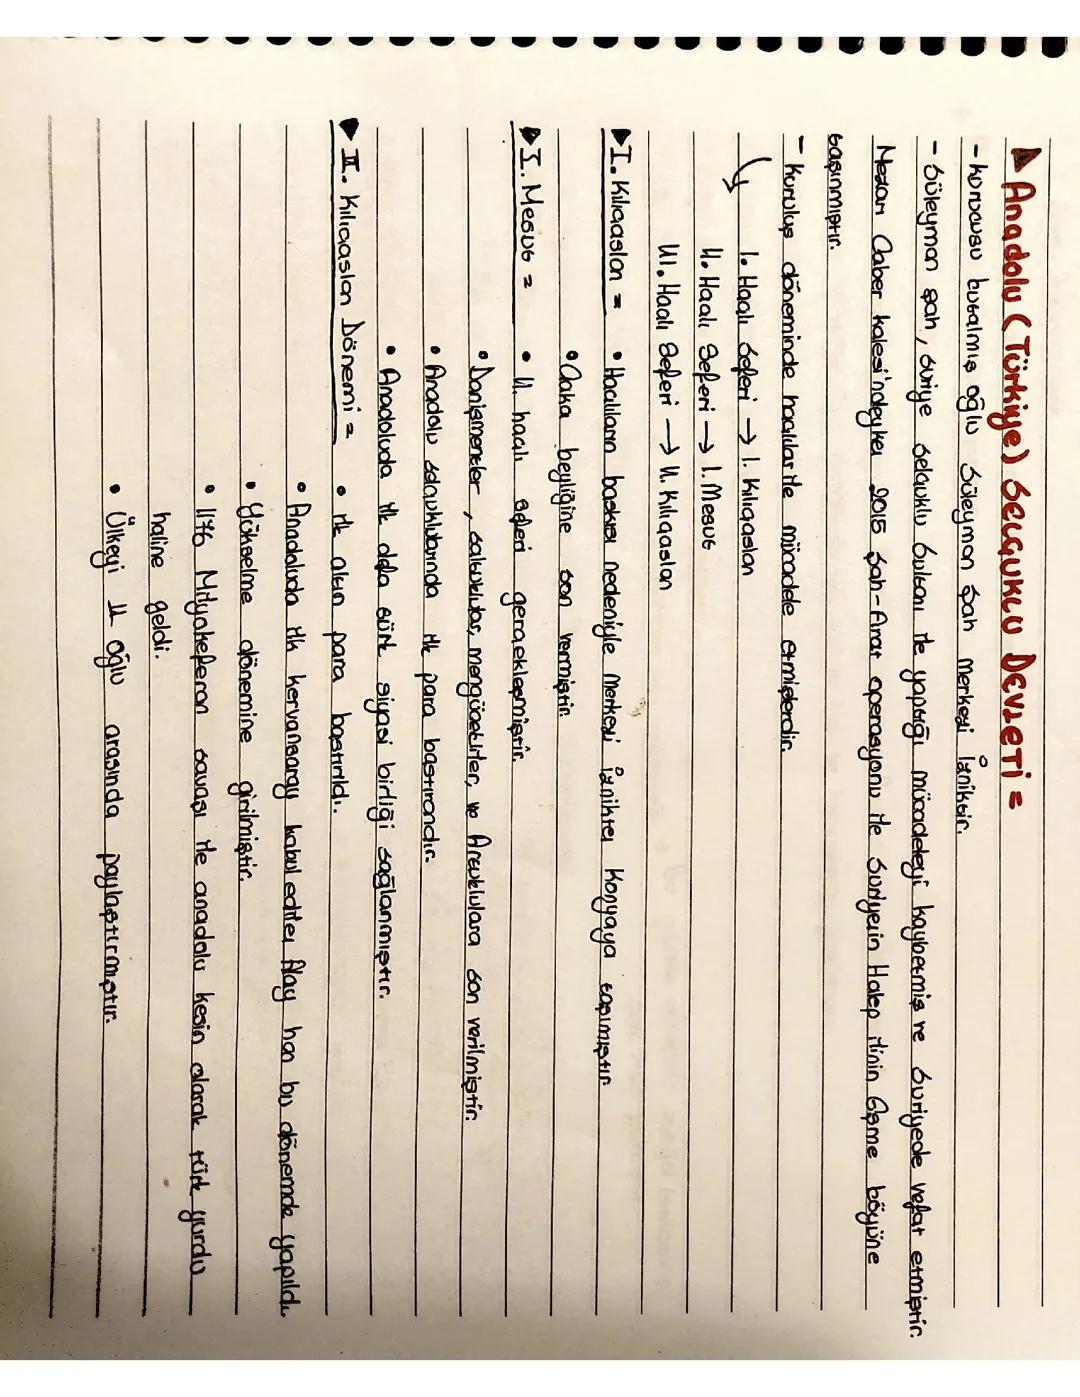 ▲ Anadolu (Türkiye) SELÇUKLU DEVLETİ =
- kurucusu kutalmış oğlu Süleyman Şah merkezi İzniktir.
- Süleyman şah, Suriye Selçuklu Sultanı ile yaptığı mücadeleyi kaybetmiş ve Suriyede vefat etmiştir.
Mezarı Caber kalesi'ndeyken 2015 Şah-Fırat operasyonu ile Suriyenin Halep ilinin Eşme köyüne
taşınmıştır.
- Kuruluş döneminde haçlılar ile mücadele etmişlerdir.
I. Haçlı Seferi → I. Kılıçaslan
II. Haçlı Seferi → I. Mesut
III. Haçlı Seferi → II. Kılıçaslan
▶ I. Kılıçaslan = • Haçlıların baskısı nedeniyle Merkezi iznikten Konyaya taşımıştır
• Çaka beyliğine son vermiştir.
▶ I. Mesut = • II. haçlı seferi gerçekleşmiştir.
• Danişmentler, saltuklular, mengücekliler, ve Artuklulara son verilmiştir.
• Anadolu selçuklularında ilk para bastırandır.
• Anadoluda ilk defa türk siyasi birliği sağlanmıştır.
▶ II. Kılıçaslan Dönemi = • ilk altın para bastırıldı.
• Anadoluda ilk kervansaray kabul edilen Alay han bu dönemde yapıldı
• Yükselme dönemine girilmiştir.
• 1176 Miryakefalon savaşı ile anadolu kesin olarak türk yurdu
haline geldi.
• Ülkeyi 11 oğlu arasında paylaştırmıştır.